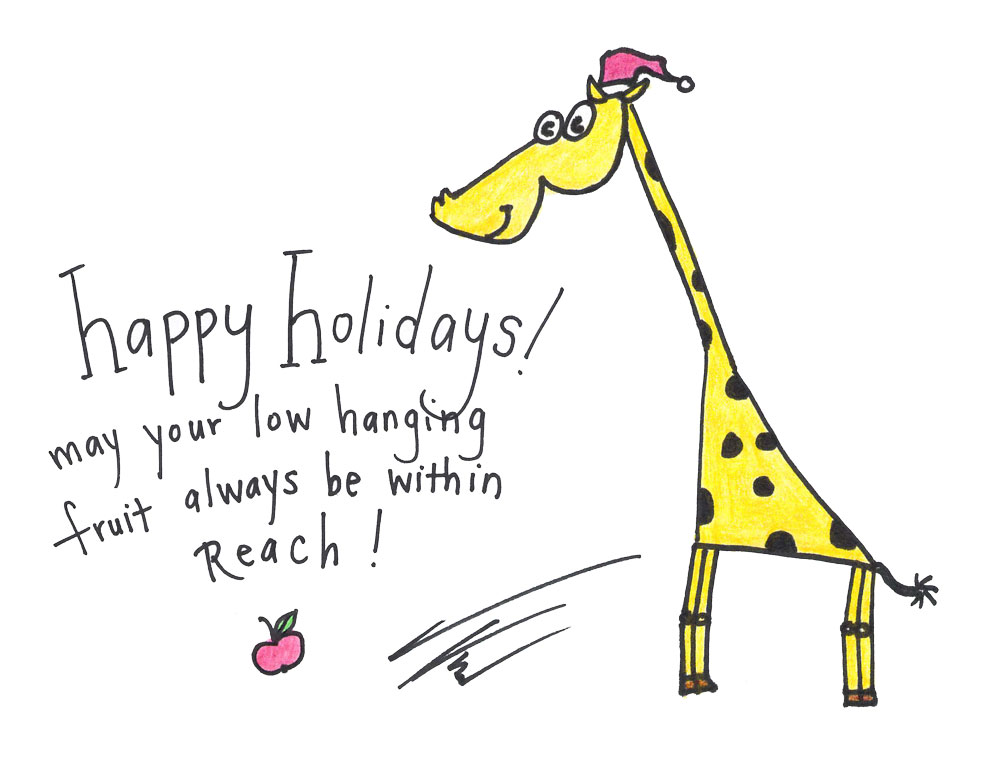 happy holidays!
may your low hanging
fruit always be within
Reach!